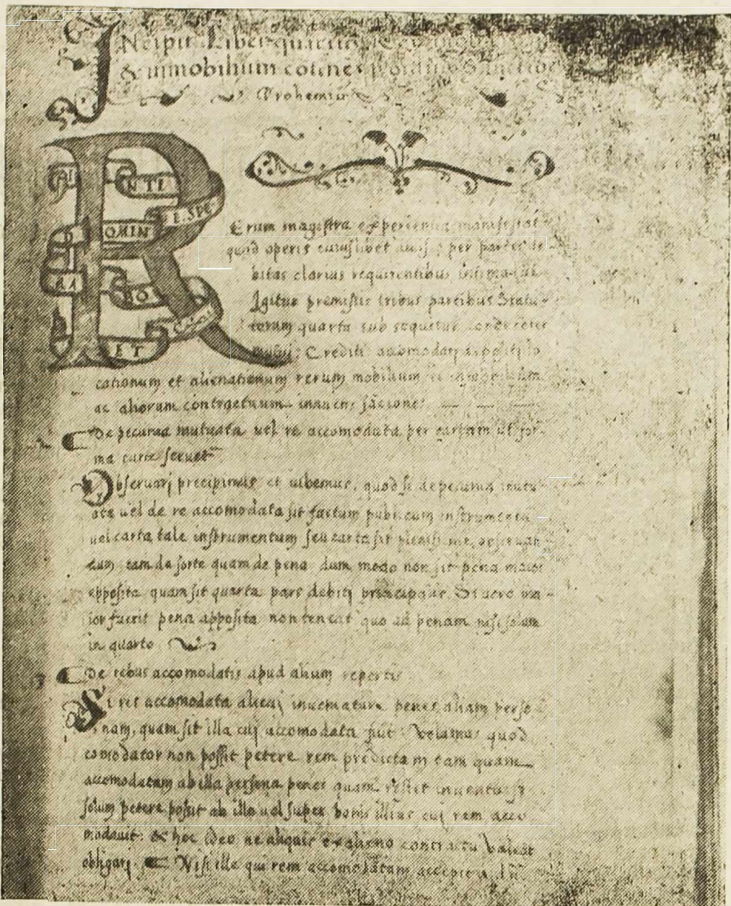 INcipit Liber quartus
& immobilium
Prohemium
Erum magistra experientia manifestat
quod operis cuiuslibet per partes
bitas clarius requirentibus intima
Igitur premissis tribus partibus Statu-
torum quarta sub sequitur
Crediti accomodati depositi lo
cationum et alienationum rerum mobilium et immobilium
ac aliorum contractuum
De pecunia mutuata uel re accomodata per cartam ut for-
ma carte seruetur
Obseruari precipimus et iubemus, quod si de pecunia mutu-
ata uel de re accomodata sit factum publicum instrumentum
uel carta tale instrumentum seu carta sit
tam de sorte quam de pena dum modo non sit pena maior
apposita quam sit quarta pars debiti principalis Si uero ma-
ior fuerit pena apposita non teneat quo ad penam nisi solum
in quarto
De rebus accomodatis apud alium repertis
Si res accomodata alicui inueniatur penes aliam perso-
nam, quam sit illa cui accomodata fuit Volumus quod
comodator non possit petere rem predictam eam quam
accomodatam ab illa persona penes quam
solum petere possit ab illo uel super bonis illius cui rem acco
modauit: & hoc ideo ne aliquis ex alieno contractu ualeat
obligari Nisi ille qui rem accomodatam accepit
AI
NTI
E.SPE
OMIN
BO
ET